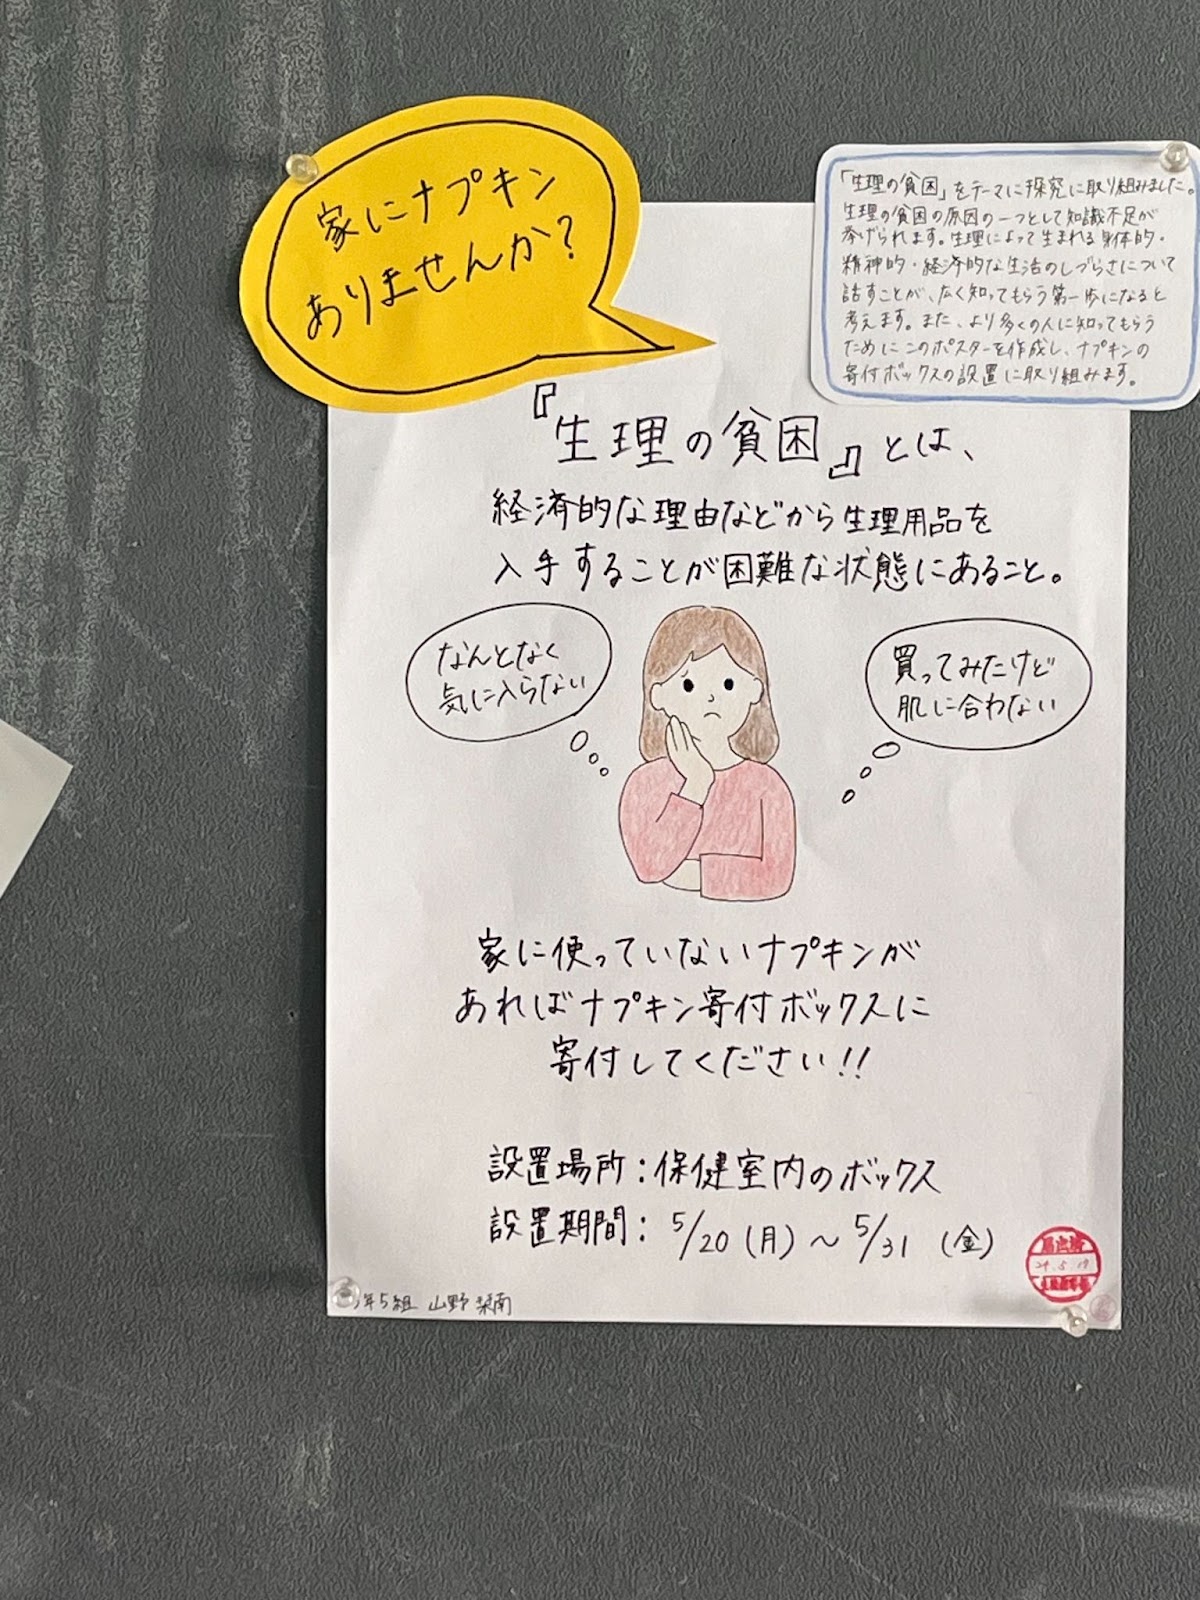 家にナプキン
ありませんか?
「生理の貧困」をテーマに探究に取り組みました。
生理の貧困の原因の一つとして知識不足が
挙げられます。生理によって生まれる身体的・
精神的・経済的な生活のしづらさについて
話すことが、広く知ってもらう第一歩になると
考えます。また、より多くの人に知ってもらう
ためにこのポスターを作成し、ナプキンの
寄付ボックスの設置に取り組みます。
『生理の貧困』とは、
経済的な理由などから生理用品を
入手することが困難な状態にあること。
なんとなく
気に入らない
買ってみたけど
肌に合わない
家に使っていないナプキンが
あればナプキン寄付ボックスに
寄付してください!!
設置場所:保健室内のボックス
設置期間: 5/20 (月) ~ 5/31 (金)
年5組 山野 栞南